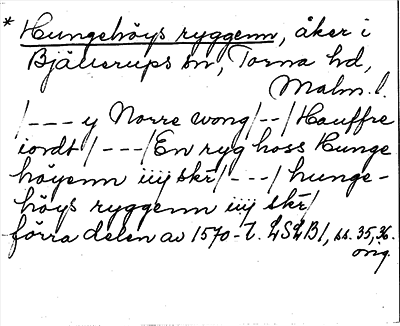 * Hungehöys ryggenn, åker i
Bjällerups sn, Torna hd,
Malm. l.
/--- y Norre wong/--/Hauffre
iordt/---/En ryg hoss Hunge
höyenn iiij skr/---/hunge-
höys ryggenn iiij skr/
förra delen av 1570-t. LSLB1, ss. 35, 36.
orig.